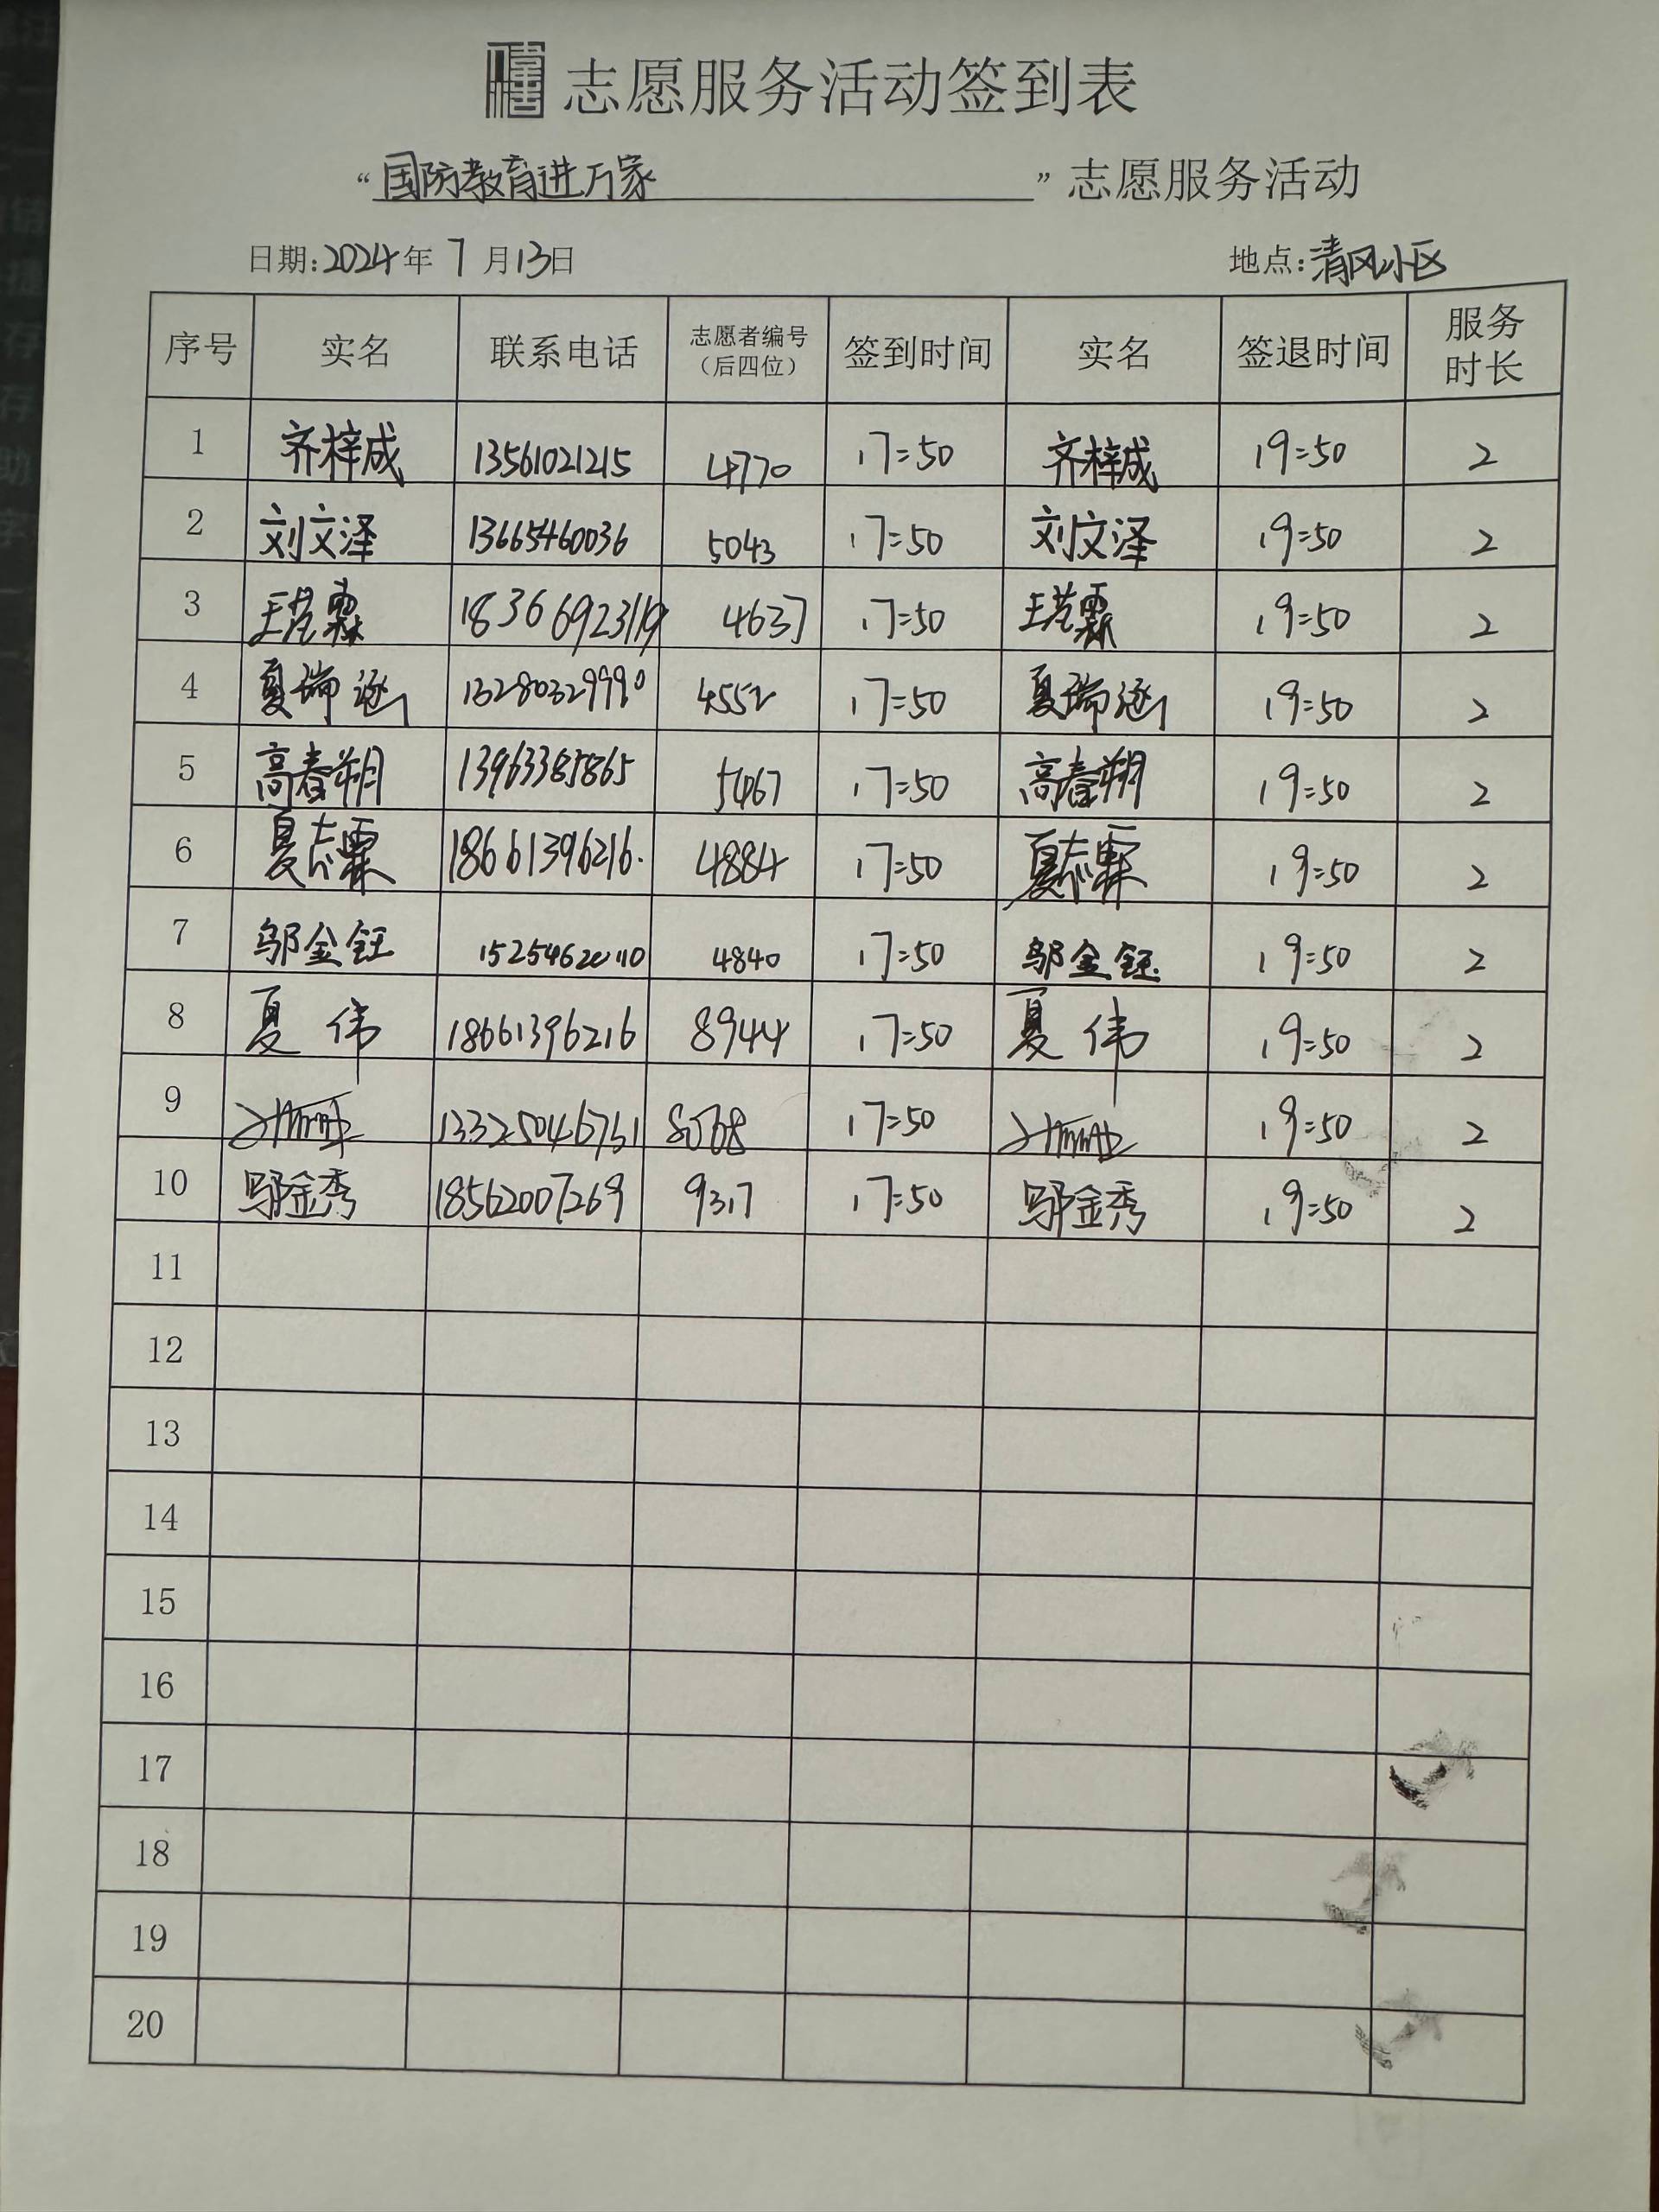 志愿服务活动签到表
“国防教育进万家”志愿服务活动
日期:2024年7月13日 地点:清风小区
序号 实名 联系电话 志愿者编号(后四位) 签到时间 实名 签退时间 服务时长
1 齐梓成 13561021215 4770 17:50 齐梓成 19:50 2
2 刘文泽 13665460036 5043 17:50 刘文泽 19:50 2
3 18366923119 4637 17:50 19:50 2
4 夏瑞逊 13280329990 4552 17:50 夏瑞逊 19:50 2
5 高春朔 13963385865 5467 17:50 高春朔 19:50 2
6 夏志霖 18661396216. 4884 17:50 夏志霖 19:50 2
7 邬金钰 4840 17:50 邬金钰 19:50 2
8 夏伟 18661396216 8944 17:50 夏伟 19:50 2
9 17:50 19:50 2
10 邬金秀 18562007269 9317 17:50 邬金秀 19:50 2
11
12
13
14
15
16
17
18
19
20